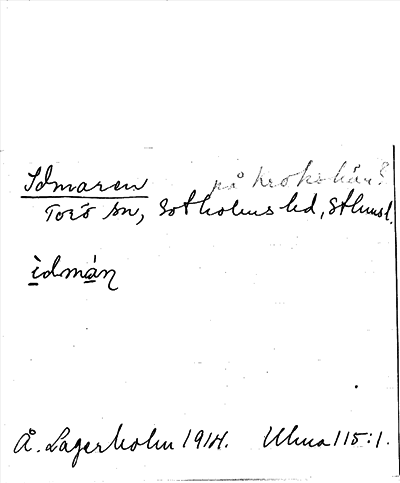 Idmaren på krokskär?
Torö sn, Sotholms hd, Sthmsl.
ìdmán
Å. Lagerholm 1914. Ulma 115:1.